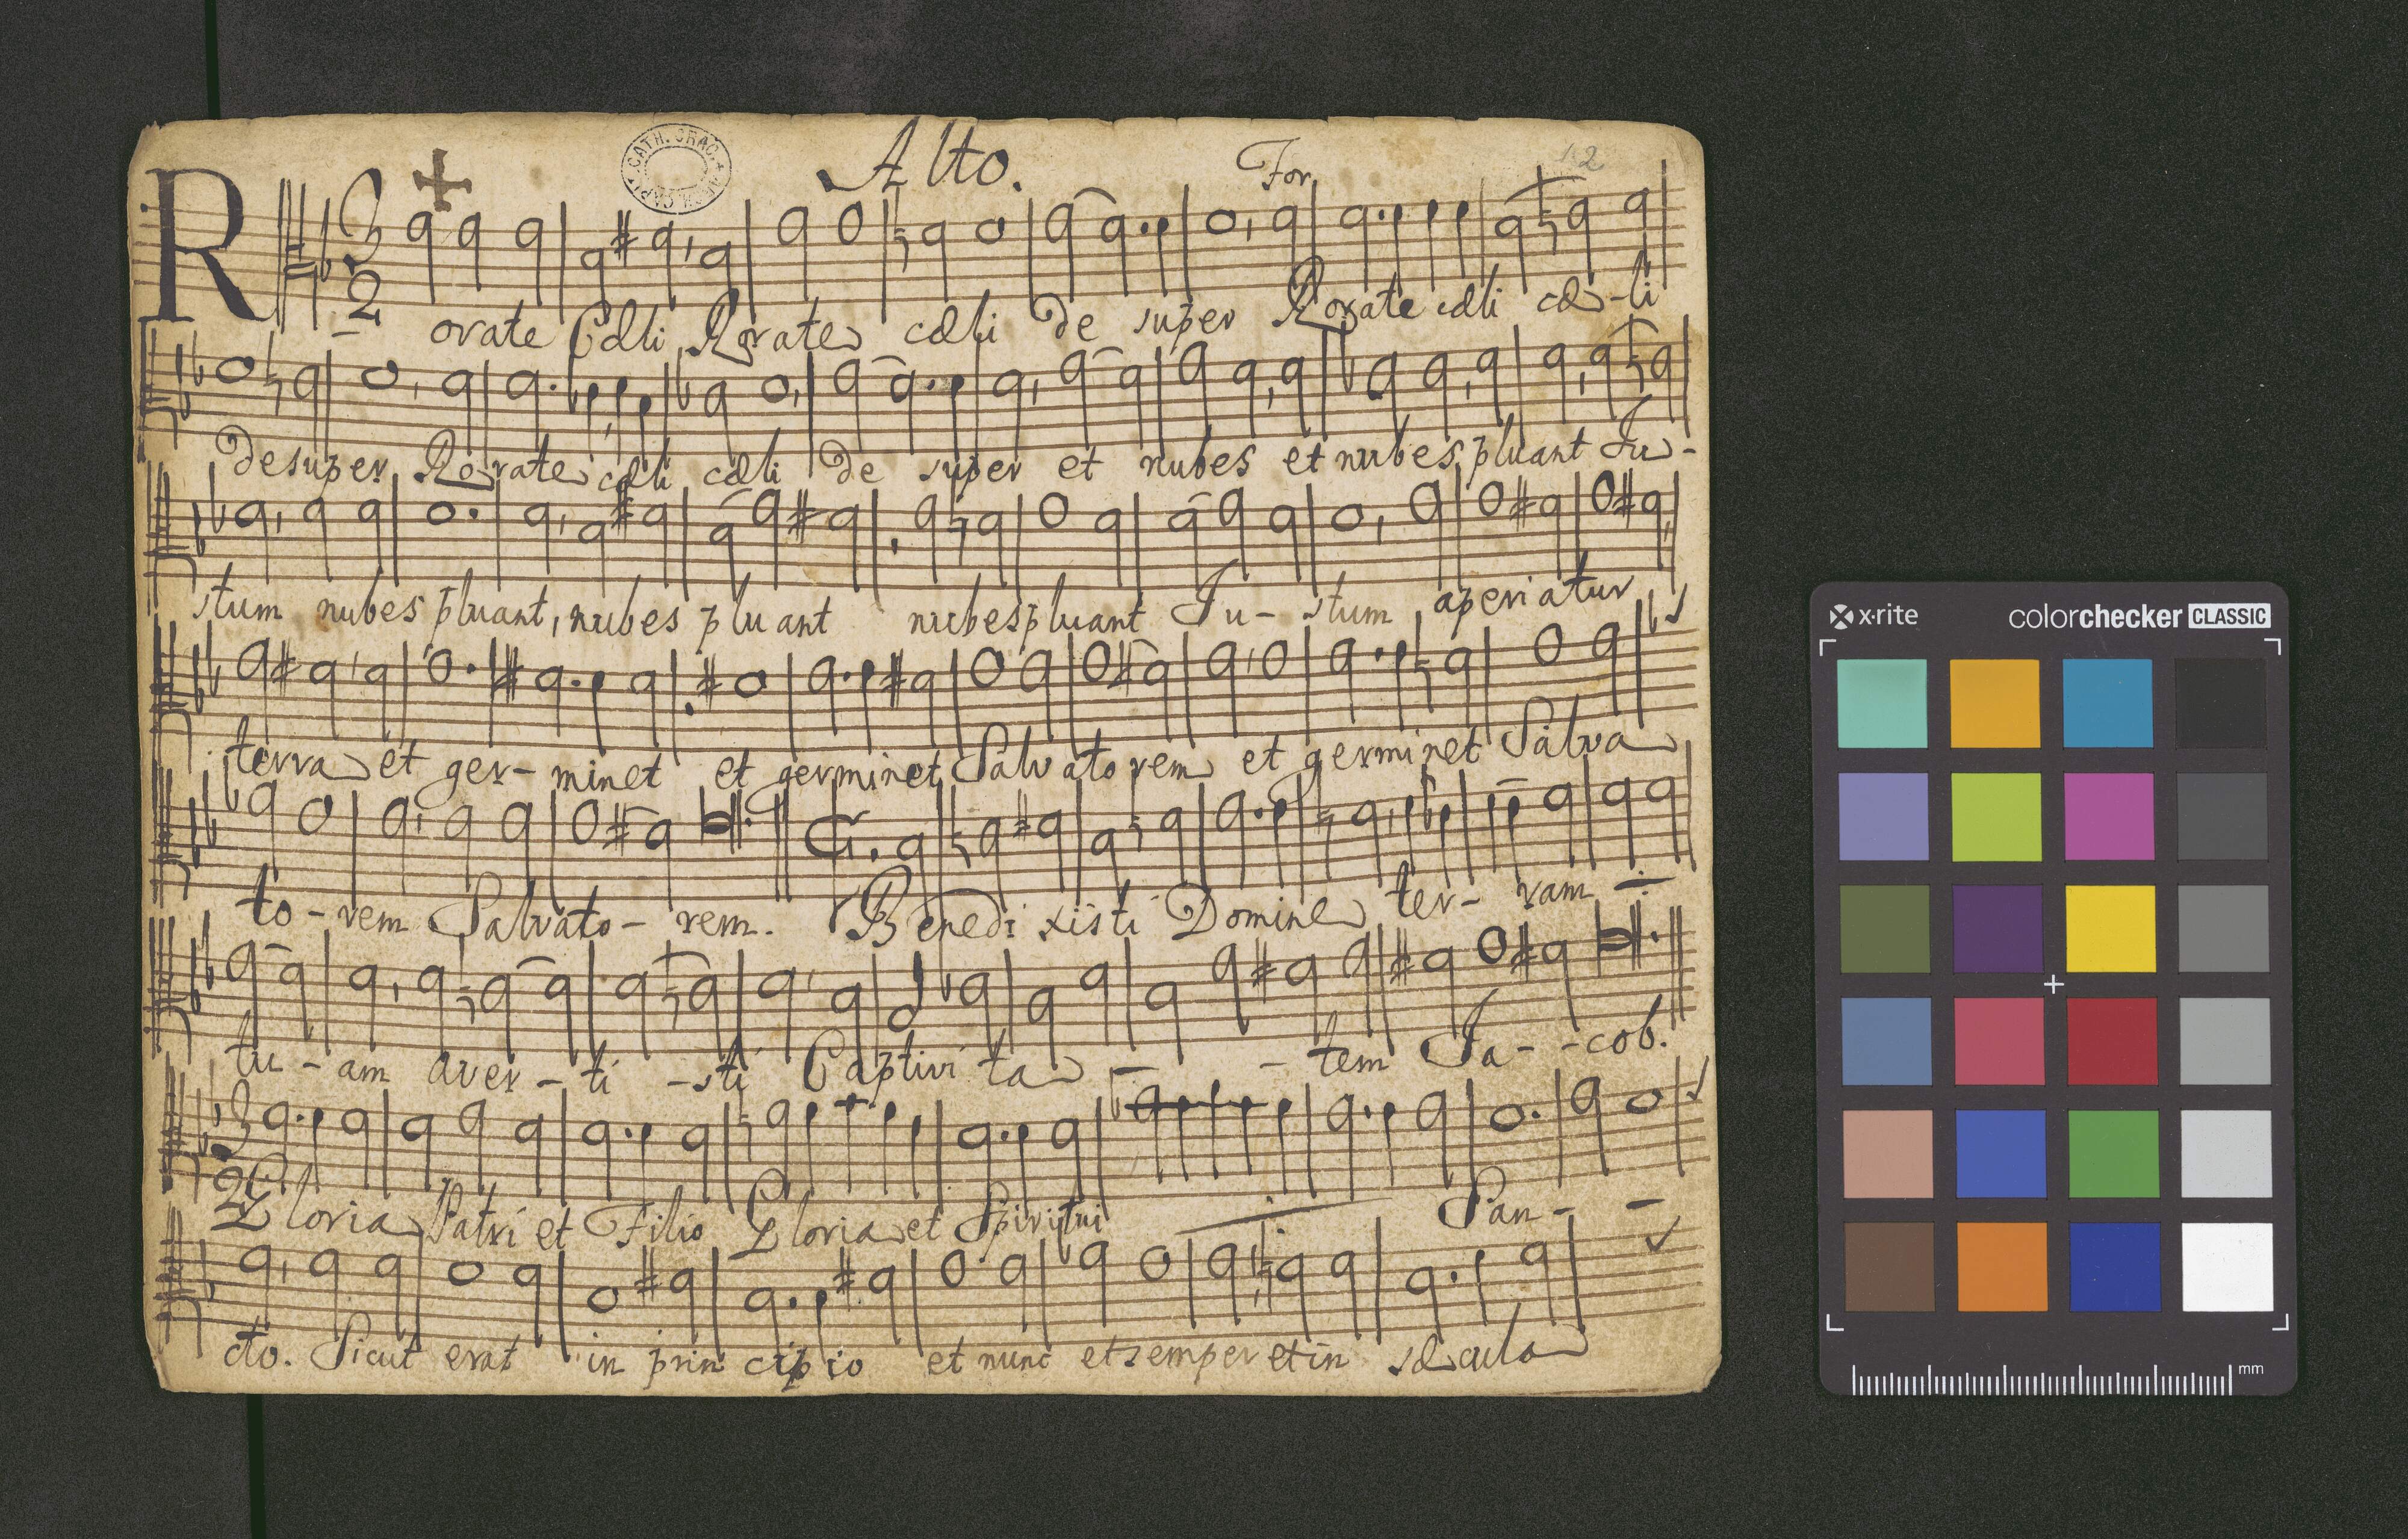 Alto.
For
12
R - orate Cæli Rorate cæli de super Rorate cæli cæ - li
desuper Rorate cæli cæli de super et nubes et nubes pluant Ju -
stum nubes pluant, nubes pluant nubes pluant Ju - stum aperiatur
terra et ger - minet et germinet Salvatorem et germinet Salva
to - rem Salvato - rem. Benedixisti Domine ter - ram
tu - am averti - sti Captivita - - tem Ja - - cob.
Gloria Patri et Filio Gloria et Spiritui San - -
cto. Sicut erat in principio et nunc et semper et in sæcula
x·rite colorchecker CLASSIC
mm